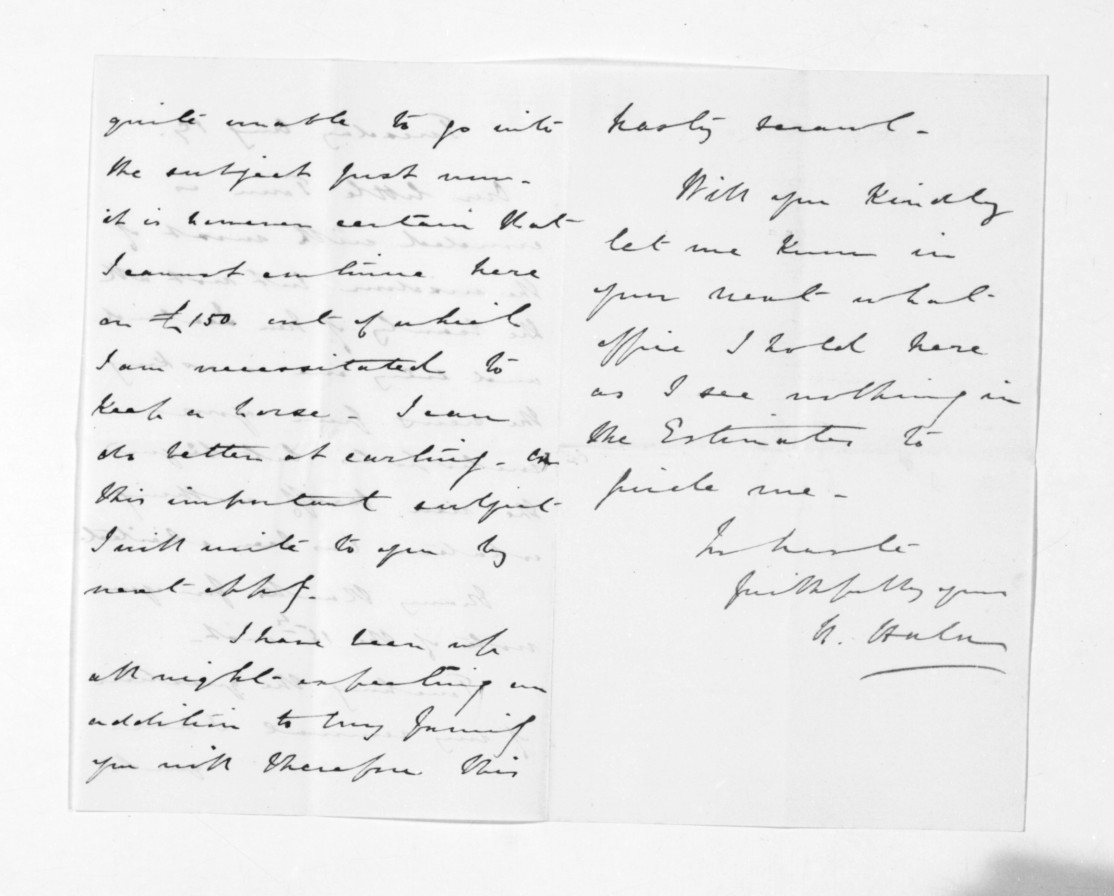 quite unable to go into
the subject just now -
it is however certain that
I cannot continue here
on £150 out of which
I am necessitated to
keep a horse - I can
do better at carting - On
this important subject
I will write to you by
next oppy.
I have been up
all night expecting an
addition to my family
you will therefore this
hasty scrawl -
Will you Kindly
let me Know in
your next what
office I hold here
as I see nothing in
the Estimates to
guide me -
In haste
Faithfully yours